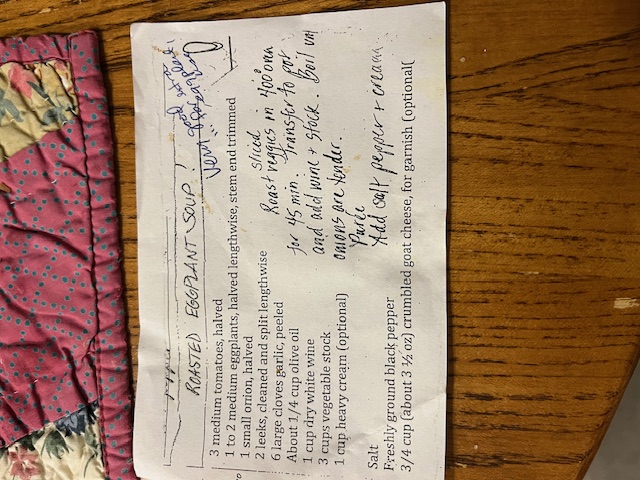 ROASTED EGGPLANT SOUP!
Very good
3 medium tomatoes, halved
1 to 2 medium eggplants, halved lengthwise, stem end trimmed
1 small onion, halved
2 leeks, cleaned and split lengthwise
6 large cloves garlic, peeled
About 1/4 cup olive oil
1 cup dry white wine
3 cups vegetable stock
1 cup heavy cream (optional)
sliced
Roast veggies in 400° oven
for 45 min. Transfer to pot
and add wine + stock. Boil until
onions are tender.
Purée
Add salt pepper + cream
Salt
Freshly ground black pepper
3/4 cup (about 3 1/2 oz) crumbled goat cheese, for garnish (optional(